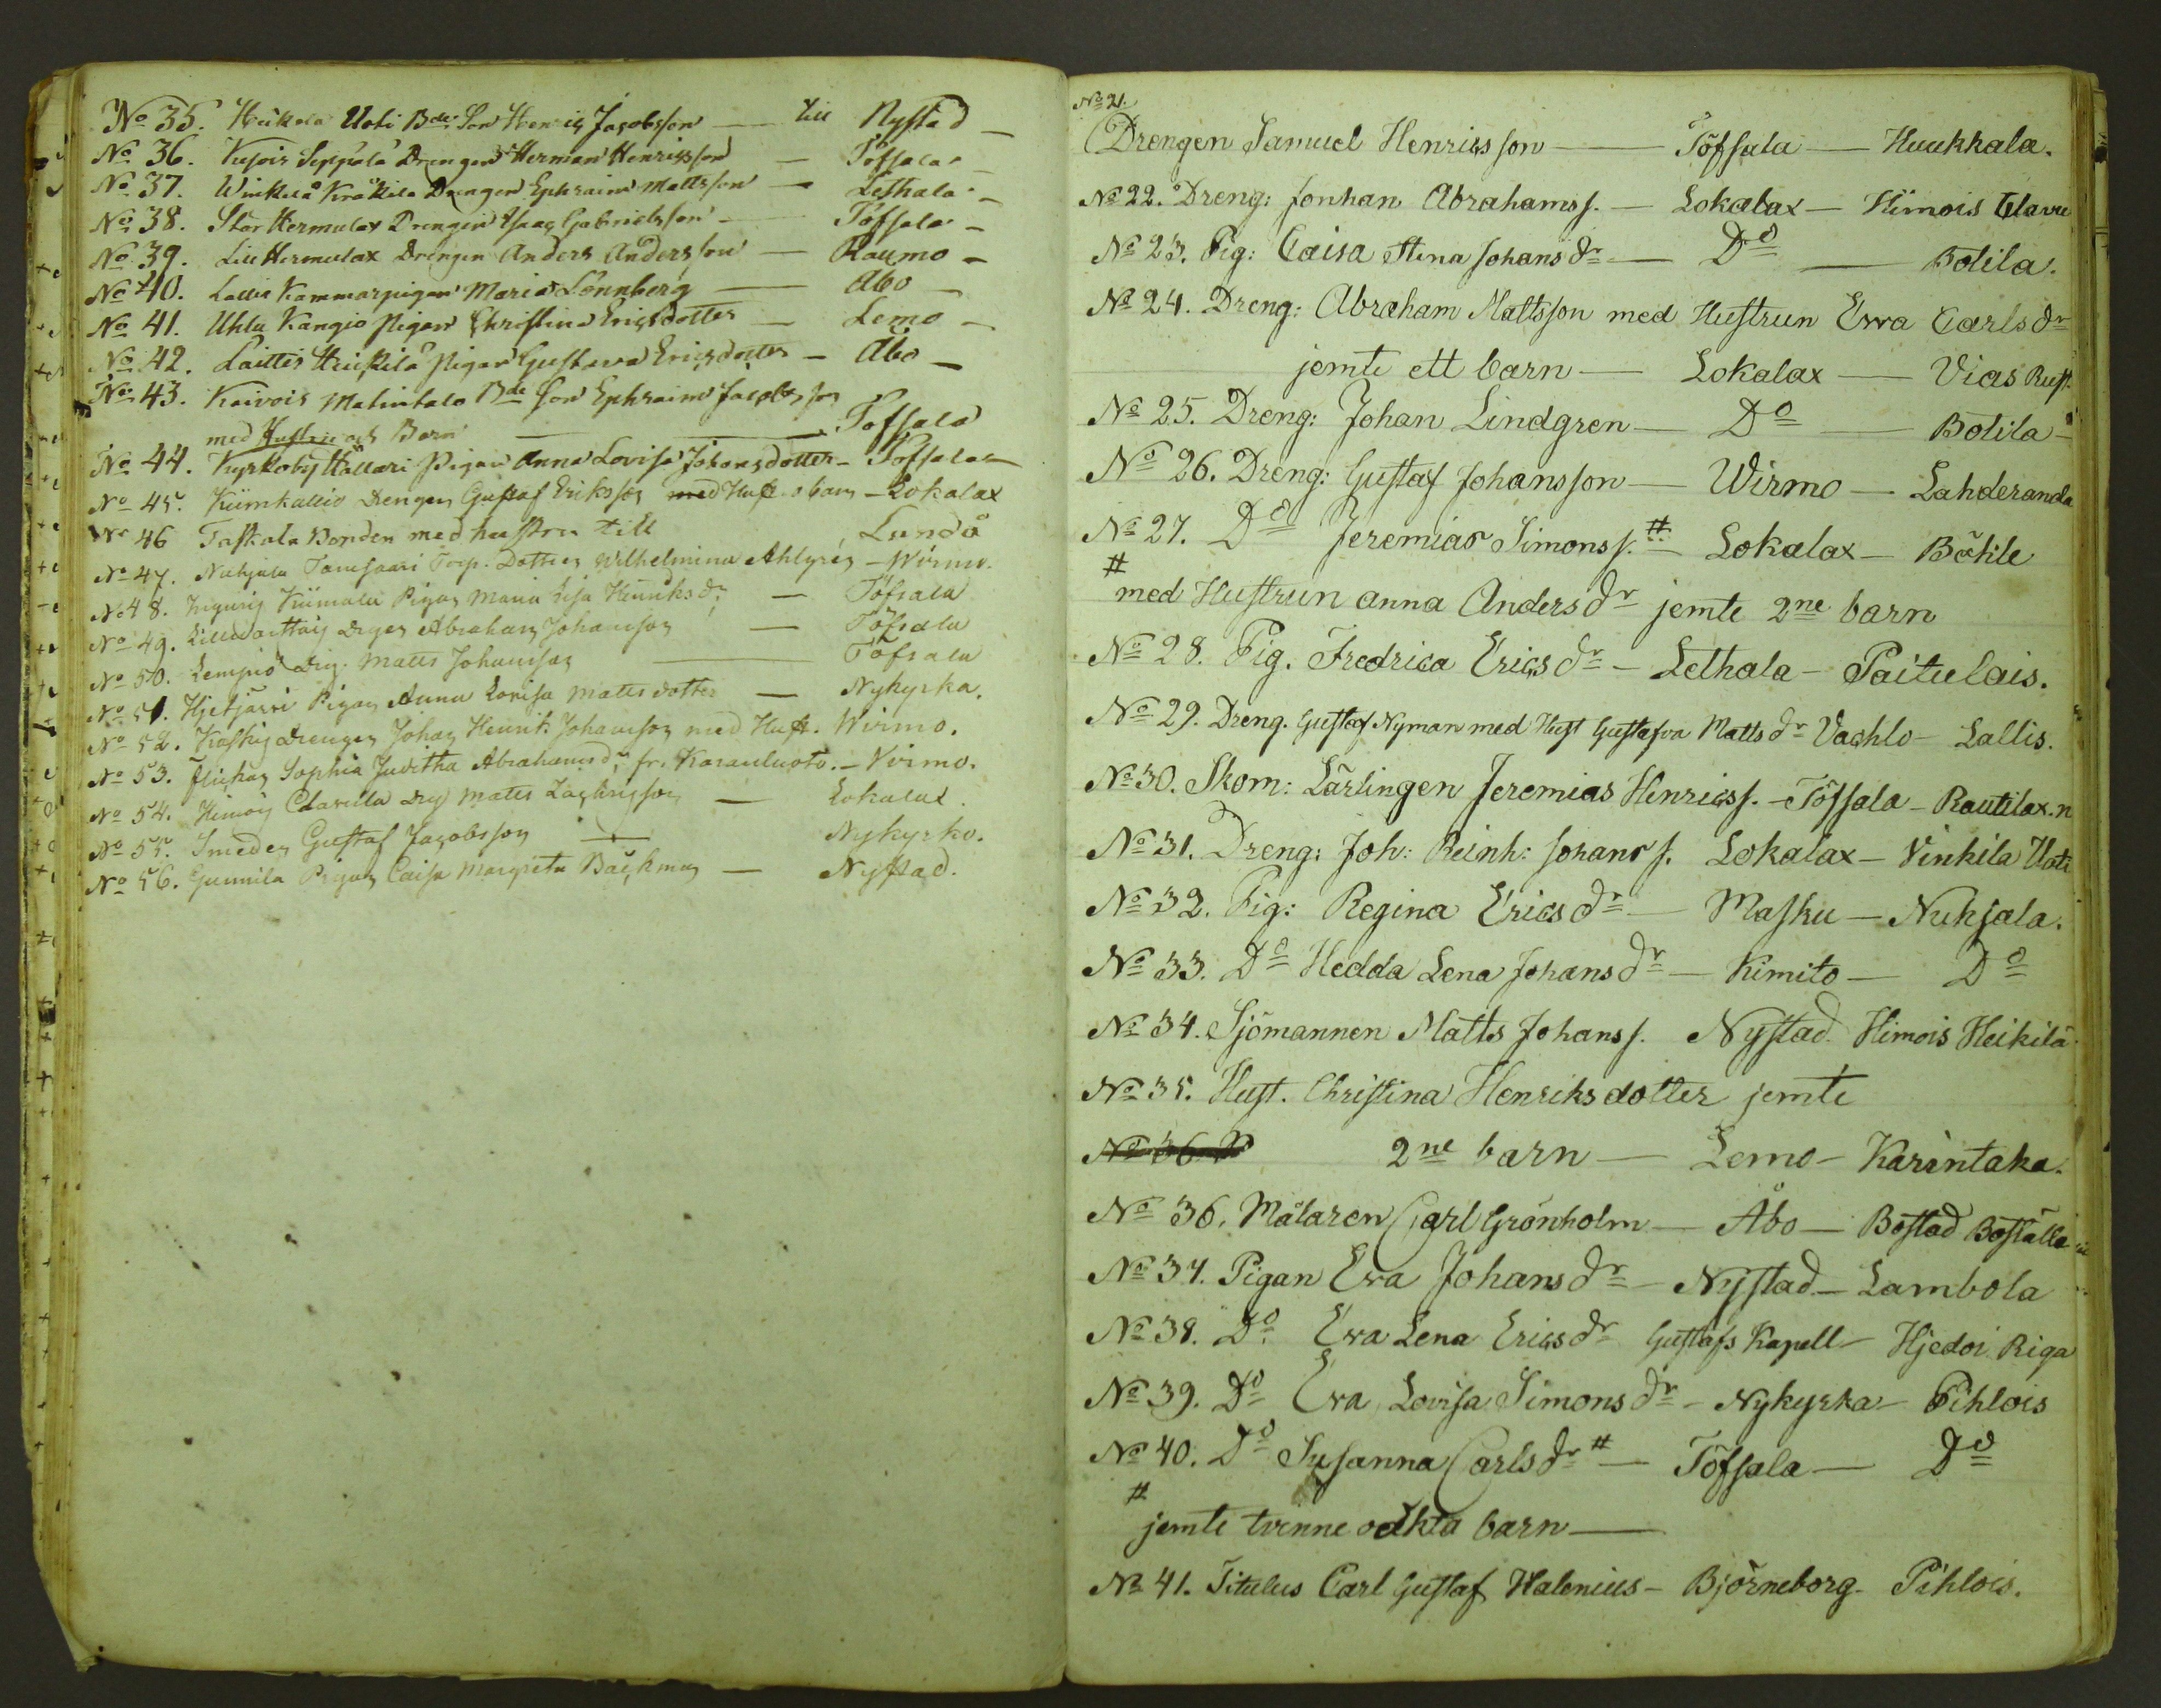 No 35. Heikola Uoti Bde Son Henric Jacobsson — till Nystad —
No 36. Seppälä Drengen Herman Henricsson — Töfsala —
No 37. Winkilä Kräkilä Drengen Ephraim Mattsson — Lethala —
No 38. Stor Hermulax Drengen Isaac Gabrielsson — Töfsala —
No 39. Lill Hermulax Drengen Anders Andersson — Raumo —
No 40. Lallis Kammarpigan Maria Lönnberg — Åbo —
No 41. Uhlu Kangio Pigan Christina Ericsdotter — Lemo —
No 42. Laittis Heikilä Pigan Gustava Ericsdotter — Åbo —
No 43. Kaivois Matintalo Bde Son Ephraim Jacobsson
med Hustru och Barn — Töfsala
No 44. Kyrkoby Hällari Pigan Anna Lovisa Johansdotter — Töfsala —
No 45. Kiimkallio Drengen Gustaf Eriksson med Hust. o barn — Lokalax
No 46 Taskala Bonden med hustru till Lundo
No 47. Nuhjala Tamsaari Torp. Dotter Wilhelmina Ahlgren — Wirmo.
No 48. Kiimalu Pigan Maria Lisa Henriksdr — Töfsala
No 49. Drgen Abraham Johansson — Töfsala
No 50. Lempio drg. Matts Johansson — Töfsala
No 51. Hjetjärvi Pigan Anna Lovisa Mattsdotter — Nykyrka.
No 52. Kaskis drengen Johan Henrik Johansson med Hust. Wirmo.
No 53. Flickan Sophia Juditha Abrahamsdr, fr. Karauluoto. — Virmo.
No 54. Himois Clavula drg Matts Zachrisson — Lokalax.
No 55. Smeden Gustaf Jacobsson — Nykyrko.
No 56. Gunnila Pigan Caisa Margreta Bäckman — Nystad.
No 21.
Drengen Samuel Henricsson — Töfsala — Huukkala.
No 22. Dreng: Jonhan Abrahamss. — Lokalax — Himois Clavu
No 23. Pig: Caisa Stina Johansdr — Do — Polila.
No 24. Dreng: Abraham Mattsson med Hustrun Ewa Carlsdr
jemte ett barn — Lokalax — Vias Rust.
No 25. Dreng: Johan Lindgren — Do — Bolila —
No 26. Dreng: Gustaf Johansson — Wirmo — Lahderanda
No 27. Do Jeremias Simonss. # Lokalax — Böhle
# med Hustrun Anna Andersdr jemte 2ne barn
No 28. Pig. Fredrica Ericsdr — Lethala — Paitulais.
No 29. Dreng. Gustaf Nyman med Hust Gustafva Mattsdr Vachlo — Lallis.
No 30. Skom: Lärlingen Jeremias Henricss. — Töfsala — Rautilax.n
No 31. Dreng: Joh: Reinh: Johanss. Lokalax — Vinkila Uoti
No 32. Pig: Regina Ericsdr — Masku — Nuhjala.
No 33. Do Hedda Lena Johansdr — Kimito — Do
No 34. Sjömannen Matts Johanss. Nystad. Himois Heikilä
No 35. Hust. Christina Henriksdotter jemte
No 36 2ne barn — Lemo — Karintaka.
No 36. Målaren Carl Grönholm — Åbo — Bostad Boställe
No 37. Pigan Ewa Johansdr — Nystad — Lambola
No 38. Do Ewa Lena Ericsdr Gustafs Kapell — Hjedoi Riga
No 39. Do Ewa Lovisa Simonsdr — Nykyrka — Pihlois
No 40. Do Susanna Carlsdr # — Töfsala — Do
# jemte tvenne oäkta barn —
No 41. Titulus Carl Gustaf Walenius — Björneborg — Pihlois.